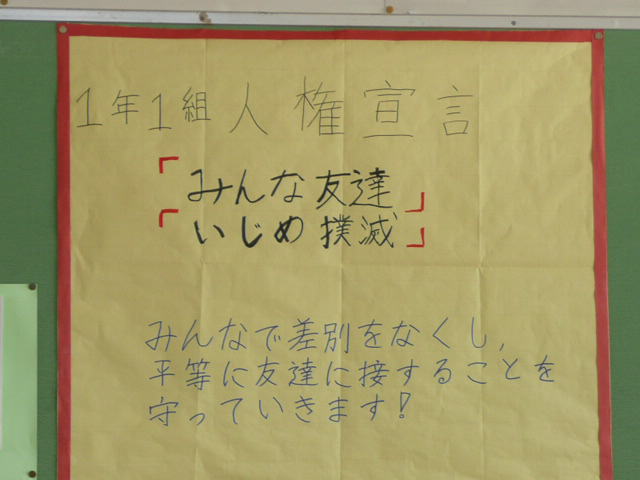 1年1組人権宣言
「みんな友達」
「いじめ撲滅」
みんなで差別をなくし,
平等に友達に接することを
守っていきます!